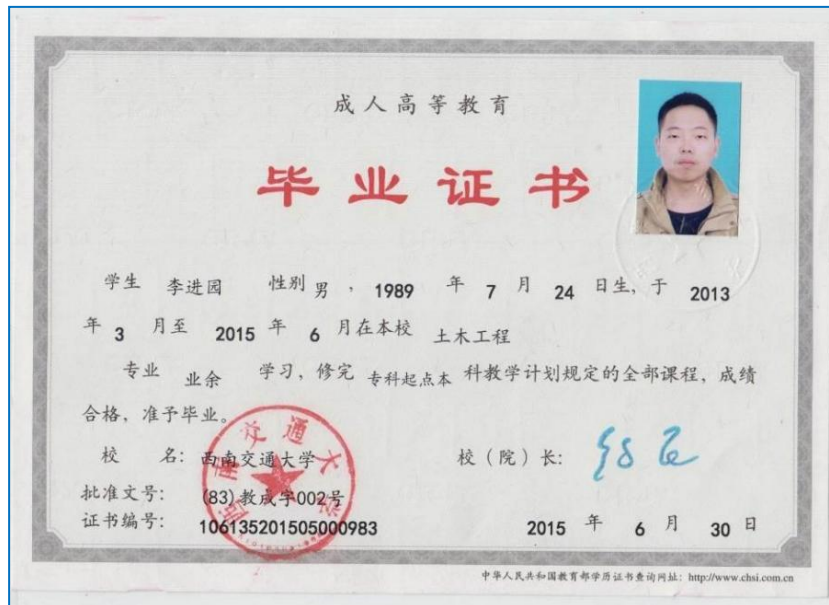 成人高等教育
毕业证书
学生 李进园 性别 男 , 1989 年 7 月 24 日生, 于 2013
年 3 月至 2015 年 6 月在本校 土木工程
专业 业余 学习, 修完 专科起点本 科教学计划规定的全部课程, 成绩
合格, 准予毕业。
校 名: 西南交通大学 校(院)长:
西南交通大学
批准文号: (83)教成字002号
证书编号: 106135201505000983 2015 年 6 月 30 日
中华人民共和国教育部学历证书查询网址: http://www.chsi.com.cn